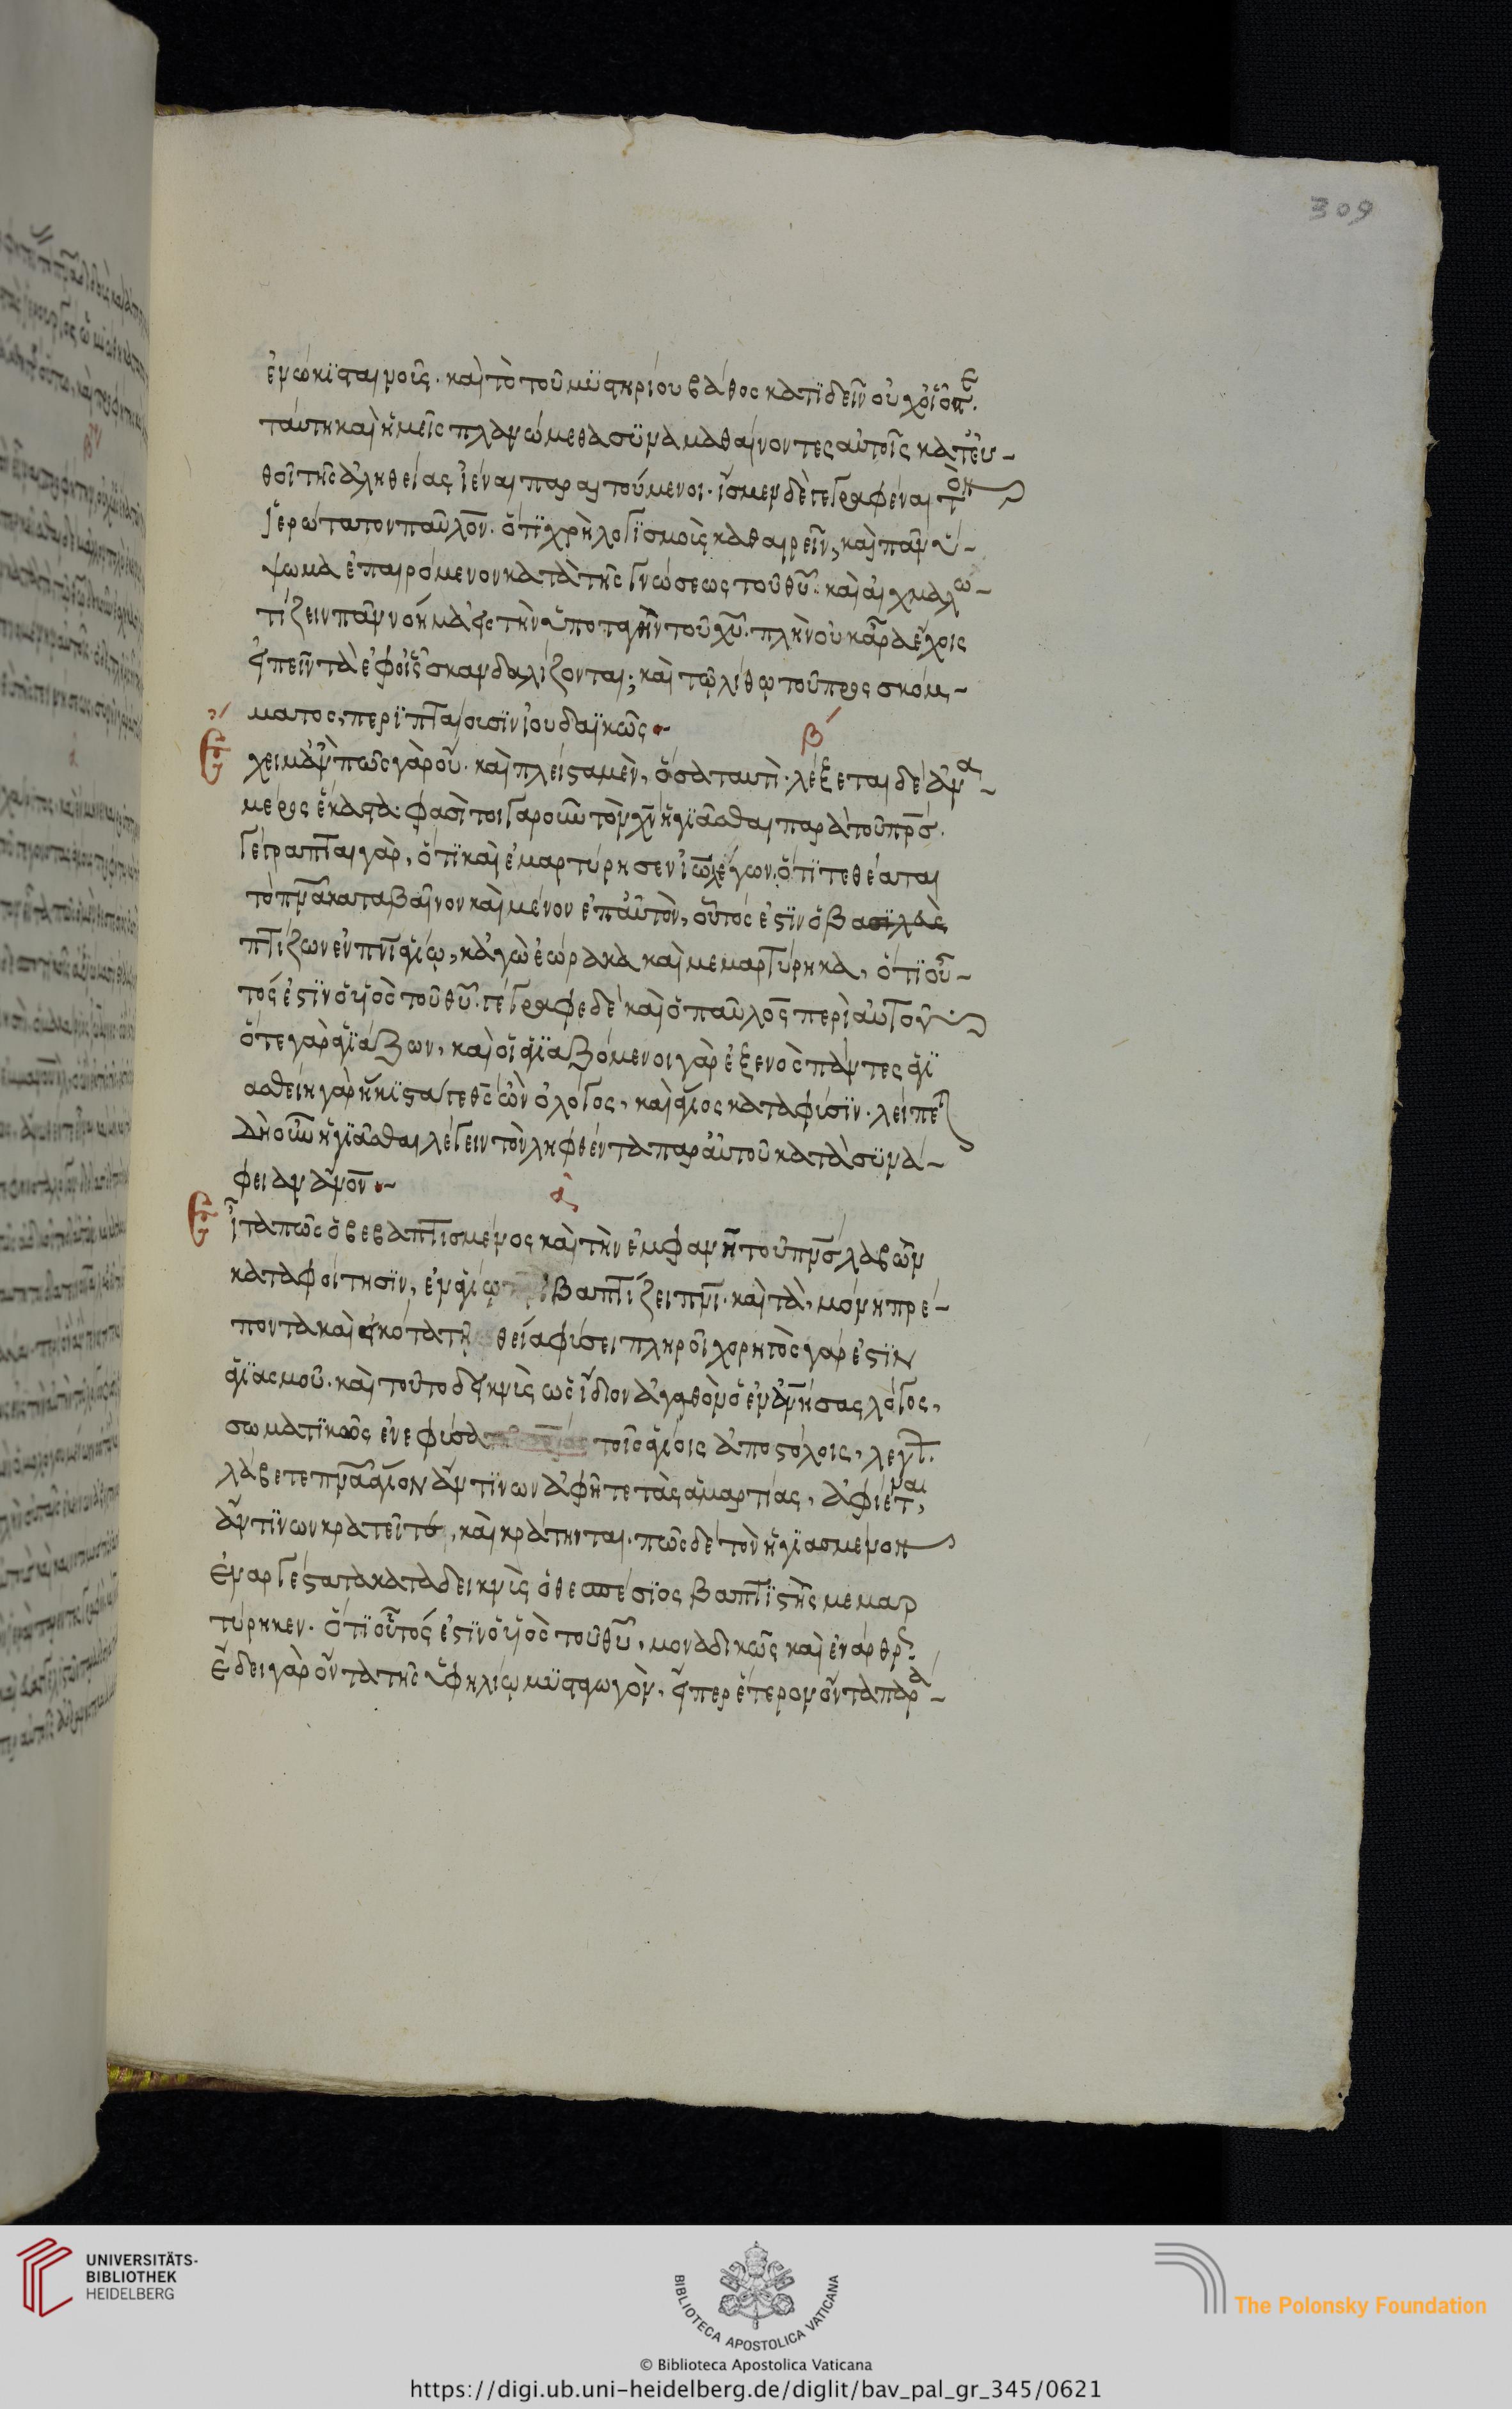 309
ἐνώκισται μοῖς. καὶ τὸ τοῦ μυστηρίου βάθος κατιδεῖν οὐχ οἷοί τε.
ταύτη καὶ ἡμεῖς πλανώμεθα συναμαθαίνοντες αὐτοῖς κατευ-
θὺ τῆς ἀληθείας ἰέναι παραιτούμενοι. ἴσμεν δὲ γεγραφέναι τὸν
ἱερώτατον παῦλον. ὅτι χρὴ λογισμοὺς καθαιρεῖν, καὶ πᾶν ὕ-
ψωμα ἐπαιρόμενον κατὰ τῆς γνώσεως τοῦ θυ. καὶ αἰχμαλω-
τίζειν πᾶν νόημα εἰς τὴν ὑποταγὴν τοῦ χυ. πλὴν οὐκ ἄρα ἔχοις
εἰπεῖν τὰ ἐφ οἷς σκανδαλίζονται; καὶ τῷ λίθῳ τοῦ προσκόμ-
ματος, περιπταίουσιν ἰουδαϊκῶς.
β
Ἔχοιμ ἂν πῶς γὰρ οὔ. καὶ πλεῖστα μὲν, ὅσα ταυτὶ. λέξεται δὲ ἀνὰ
μέρος ἕκαστα. φασὶ τοιγαροῦν τὸν χν ἡγιᾶσθαι παρὰ τοῦ πρς.
γέγραπται γὰρ, ὅτι καὶ ἐμαρτύρησεν ἰω λέγων. ὅτι τεθέαται
τὸ πνα καταβαῖνον καὶ μένον ἐπ αὐτὸν, οὗτός ἐστιν ὁ βα
πτίζων ἐν πνι ἁγίῳ, κἀγὼ ἑώρακα καὶ μεμαρτύρηκα, ὅτι οὗ-
τός ἐστιν ὁ υἱὸς τοῦ θυ. γέγραφε δὲ καὶ ὁ παῦλος περὶ αὐτοῦ
ὅ τε γὰρ ἁγιάζων, καὶ οἱ ἁγιαζόμενοι γὰρ ἐξ ενὸς πάντες ἁγι
ασθείη γὰρ ἥκιστα γε θς ὢν ὁ λόγος, καὶ ἅγιος κατὰ φύσιν. λείπε
δὴ οὖν ἡγιᾶσθαι λέγειν τὸν ληφθέντα παρ αὐτοῦ κατὰ συνά-
φειαν ἀνον.
α
Εἶτα πῶς ὁ βεβαπτισμένος καὶ τὴν ἐμφανῆ τοῦ πνς λαβὼν
καταφοίτησιν, ἐν ἁγίῳ βαπτίζει πνι. καὶ τὰ, μόνη πρέ-
ποντα καὶ εἰκότα τῇ θείᾳ φύσει πληροῖ χορηγὸς γάρ ἐστιν
ἁγιασμοῦ. καὶ τοῦτο δεικνὺς ὡς ἴδιον ἀγαθὸν ὁ ἐνανήσας λόγος,
σωματικῶς ἐνεφύσα τοῖς ἁγίοις ἀποστόλοις, λεγ.
λάβετε πνα ἅγιον ἄν τινων ἀφῆτε τὰς ἁμαρτίας, ἀφίενται,
ἄν τινων κρατεῖτε, καὶ κράτηνται. πῶς δὲ τὸν ἡγιασμένον
ἐναργέστατα καταδεικνὺς ὁ θεσπέσιος βαπτιστὴς μεμαρ
τύρηκεν. ὅτι οὗτός ἐστιν ὁ υἱὸς τοῦ θυ, μοναδικῶς καὶ ἐνάρθρ
ἔδει γὰρ ὄντα τῆς ὑφηλίῳ μυσταγωγὸν, εἴπερ ἕτερον ὄντα παρὰ-
UNIVERSITÄTS-
BIBLIOTHEK
HEIDELBERG
BIBLIOTECA APOSTOLICA VATICANA
The Polonsky Foundation
© Biblioteca Apostolica Vaticana
https://digi.ub.uni-heidelberg.de/diglit/bav_pal_gr_345/0621